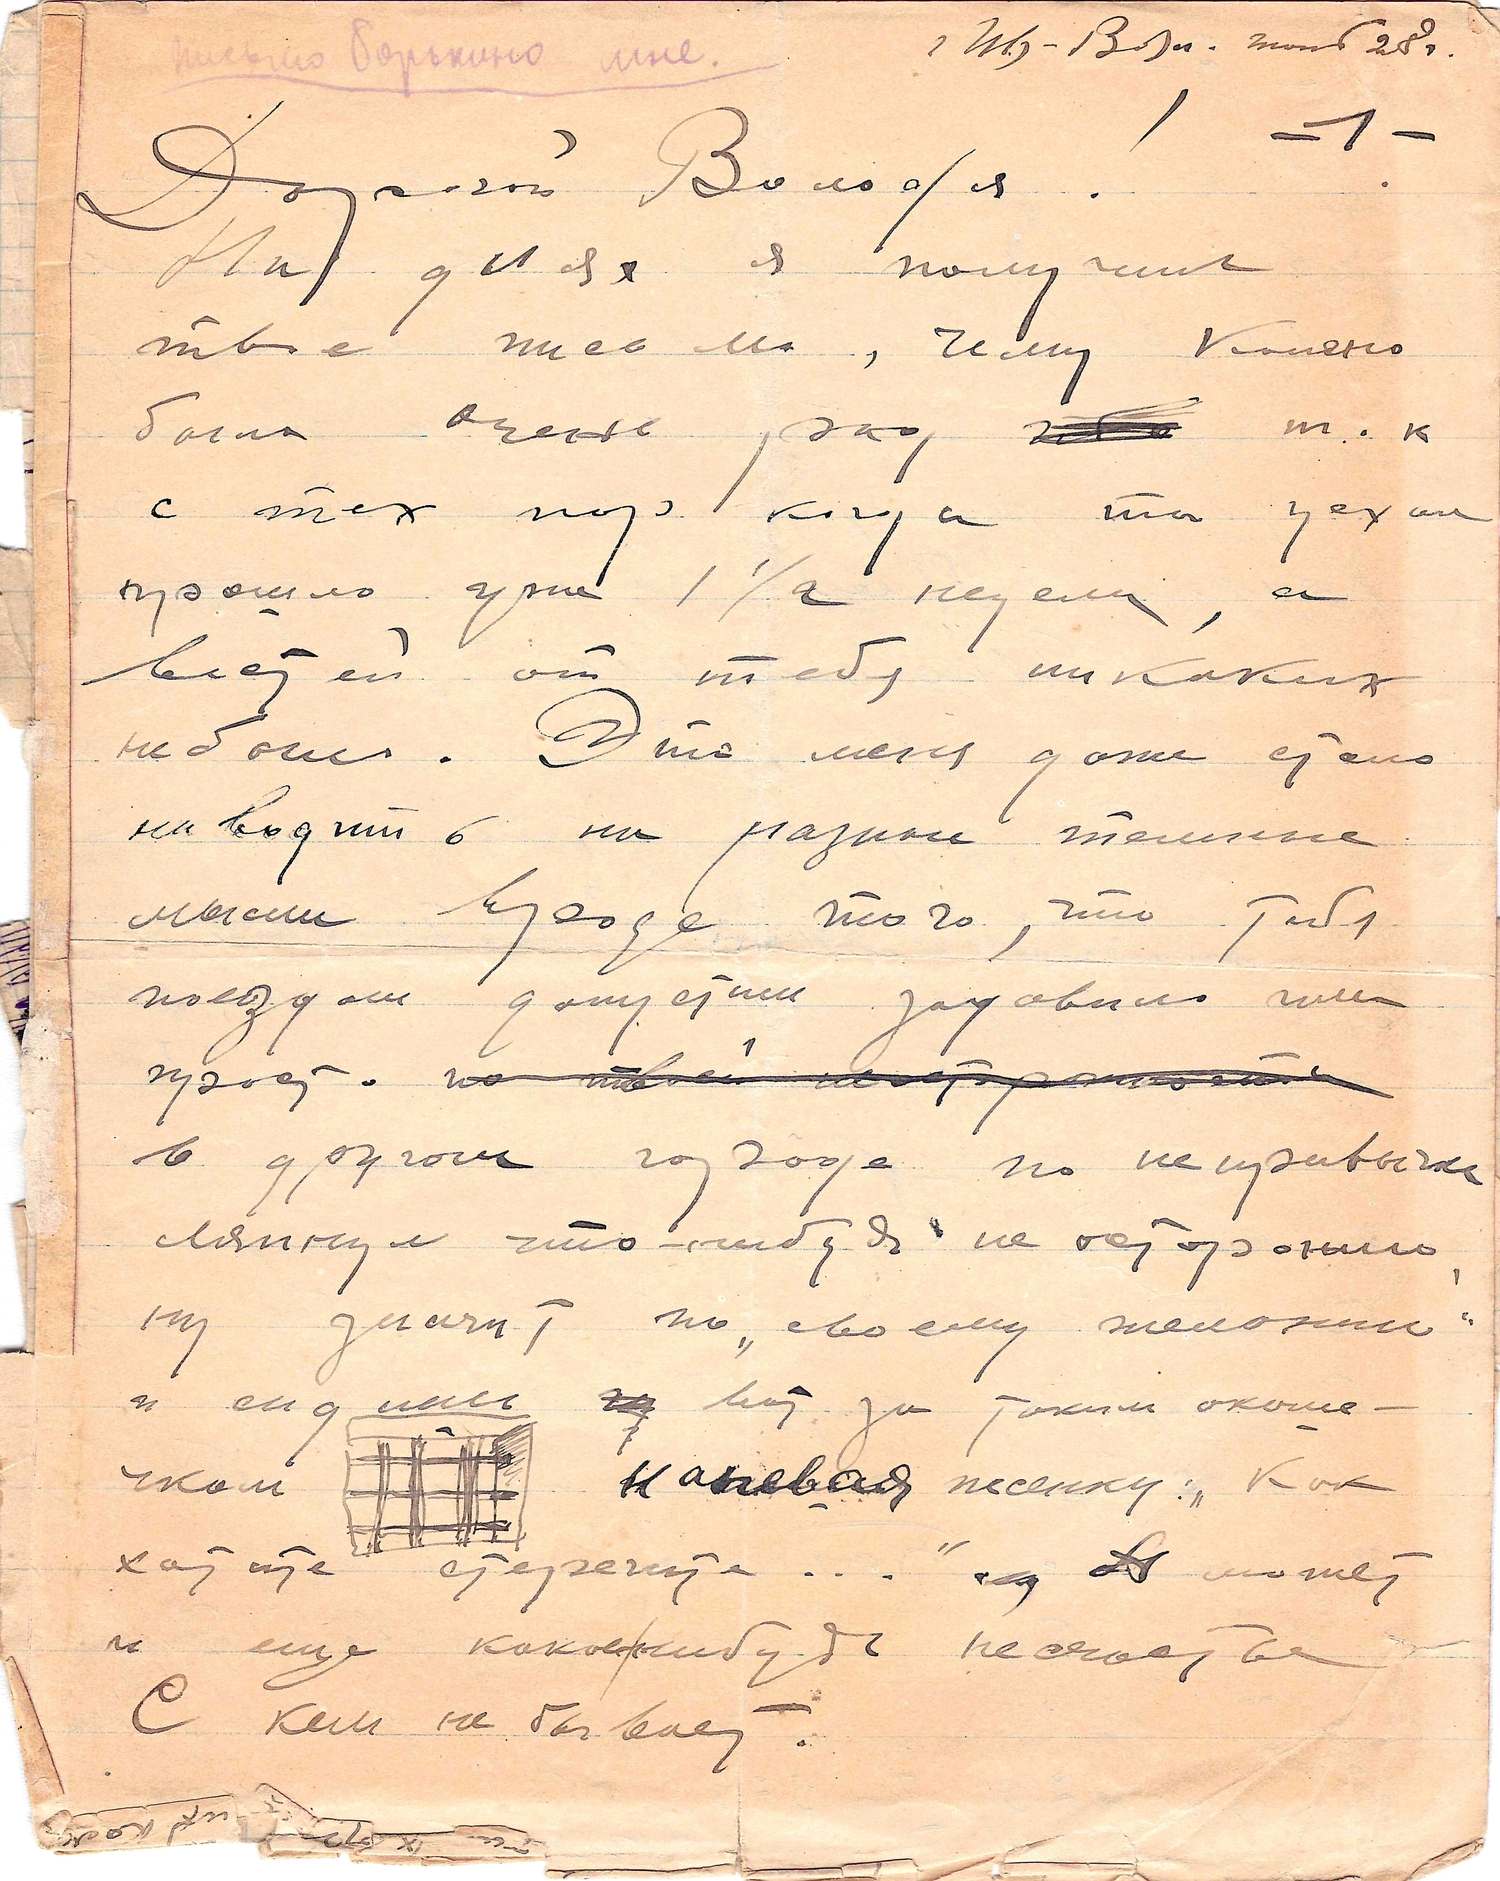 письмо Борькино мне.
г Ив-Возн. нояб 28 г.
-1-
Дорогой Володя!
На днях я получил
твое письмо, чему конечно
был очень рад т.к
с тех пор когда ты уехал
прошло уже 1 1/2 недели, а
вестей от тебя никаких
не было. Это меня даже стало
наводить на разные темные
мысли вроде того, что тебя
поездом допустим задавило или
прост. по твоей неосторожности
в другом городе по непривычке
ляпнул что-нибудь не осторожно,
ну значит по „своему желанию"
и сидишь вот за таким окоше-
чком напевая песенку: „Как
хотите стерегите ..." может
и еще какое нибудь несчастье
С кем не бывает?